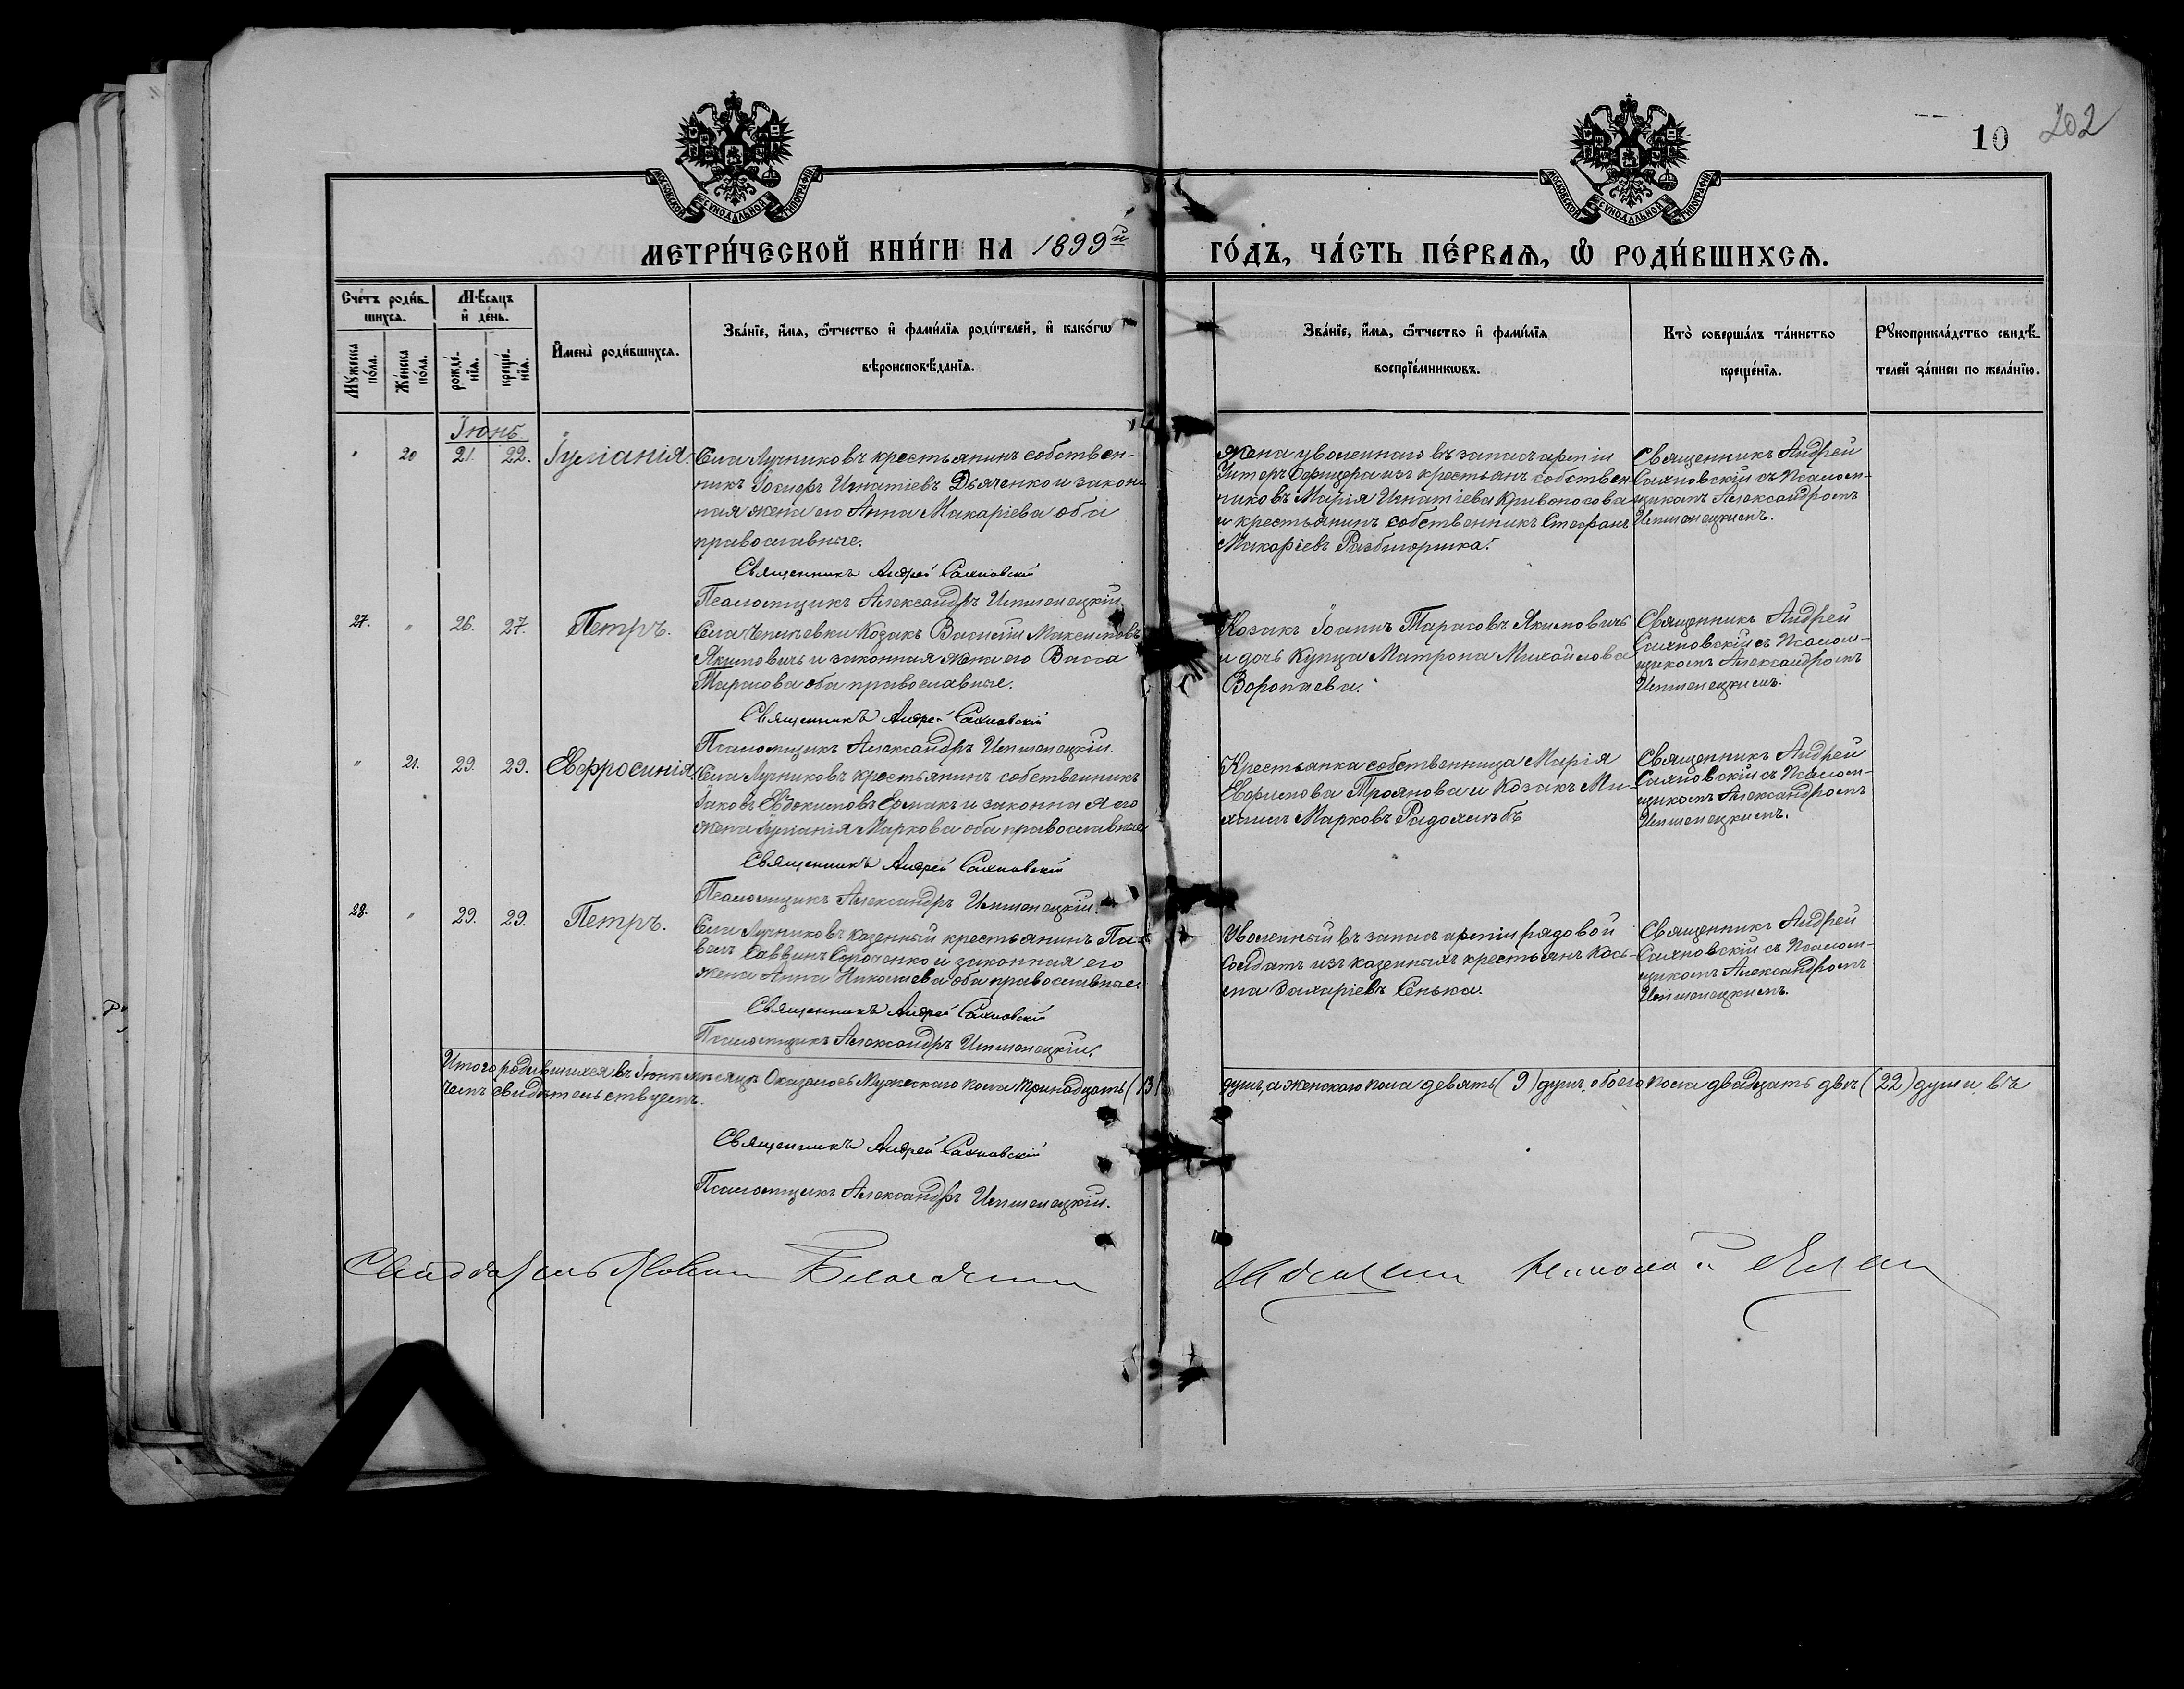 10 202
МОСКОВСКОЙ СѴНОДАЛЬНОЙ ТИПОГРАФІИ
МОСКОВСКОЙ СѴНОДАЛЬНОЙ ТИПОГРАФІИ
МЕТРИ́ЧЕСКОЙ КНИ́ГИ НА 1899й ГО́ДЪ, ЧА́СТЬ ПЕ́РВАѦ, Ѽ РОДИ́ВШИХСѦ.
Сче́тъ роди́в-
шихся.
Мꙋ́жеска по́ла.
Же́нска по́ла.
Мѣ́сяцъ
и҆ де́нь.
рожде́-
нїя.
креще́-
нїя.
И҆мена̀ роди́вшихся.
Зва́нїе, и҆́мя, ѻ҆́тчество и҆ фами́лїя роди́телей, и҆ како́гѡ
вѣроисповѣ́данїя.
Зва́нїе, и҆́мя, ѻ҆́тчество и҆ фами́лїя
воспрїе́мникѡвъ.
Кто̀ соверша́лъ та́инство
креще́нїя.
Рꙋкоприкла́дство свидѣ́-
телей за́писи по жела́нїю.
Іюнь
" 20 21. 22. Іуліанія.
Села Лучниковъ крестьянинъ собствен-
никъ Іосифъ Игнатіевъ Дьяченко и закон-
ная жена его Анна Макаріева оба
православные.
Священникъ Андрей Сахновскій
Псаломщикъ Александръ
Жена уволеннаго въ запасъ арміи
Унтеръ Офицера изъ крестьянъ собствен
никовъ Марія Игнатіева Кривоносова
и крестьянинъ собственникъ Стефанъ
Макаріевъ
Священникъ Андрей
Сахновскій съ Псалом-
щикомъ Александромъ
27. " 26. 27. Петръ.
Села Чепиевки Козакъ Василій Максимовъ
Якимовичъ и законная жена его Васса
Тарасова оба православные.
Священникъ Андрей Сахновскій
Псаломщикъ Александръ
Козакъ Іоаннъ Тарасовъ Якимовичъ
и дочь Купца Матрона Михайлова
Воропаева.
Священникъ Андрей
Сахновскій съ Псалом-
щикомъ Александромъ
" 21. 29. 29. Евфросинія
Села Лучниковъ крестьянинъ собственникъ
Іаковъ Евдокимовъ Ермакъ и законная его
жена Іуліанія Маркова оба православные
Священникъ Андрей Сахновскій
Псаломщикъ Александръ
Крестьянка собственница Марія
Ефимова Троянова и Козакъ Ми-
хаилъ Марковъ
Священникъ Андрей
Сахновскій съ Псалом-
щикомъ Александромъ
28. " 29. 29. Петръ.
Села Лучниковъ казенный крестьянинъ Па-
велъ Саввинъ Сороченко и законная его
жена Анна Николаева оба православные.
Священникъ Андрей Сахновскій
Псаломщикъ Александръ
Уволенный въ запасъ арміи рядовой
Солдатъ изъ казенныхъ крестьянъ Кось-
ма Захаріевъ Сенька.
Священникъ Андрей
Сахновскій съ Псалом-
щикомъ Александромъ
Итого родившихся въ Іюнѣ мѣсяцѣ Оказалось Мужескаго пола тринадцать (13) душъ, а женскаго пола девять (9) душъ, обоего пола двадцать двѣ (22) души, въ
чемъ свидѣтельствуемъ.
Священникъ Андрей Сахновскій
Псаломщикъ Александръ